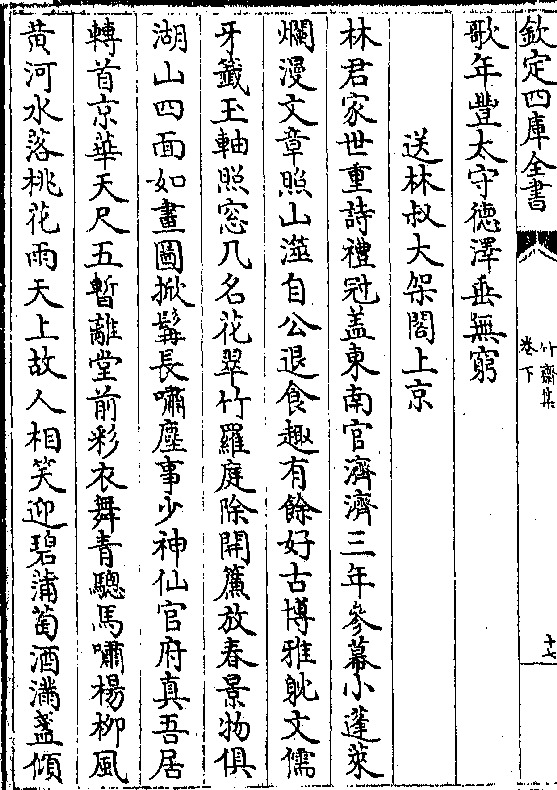 欽定四庫全書
竹齋集
卷下
十七
歌年豐太守德澤垂無窮
送林叔大架閣上京
林君家世重詩禮冠盖東南官濟濟三年參幕小蓬萊
爛漫文章照山澨自公退食趣有餘好古博雅躭文儒
牙籖玉軸照窓几名花翠竹羅庭除開簾放春景物俱
湖山四面如畫圖掀髯長嘯塵事少神仙官府真吾居
轉首京華天尺五暫離堂前彩衣舞青驄馬嘯楊柳風
黄河水落桃花雨天上故人相笑迎碧蒲萄酒滿盞傾